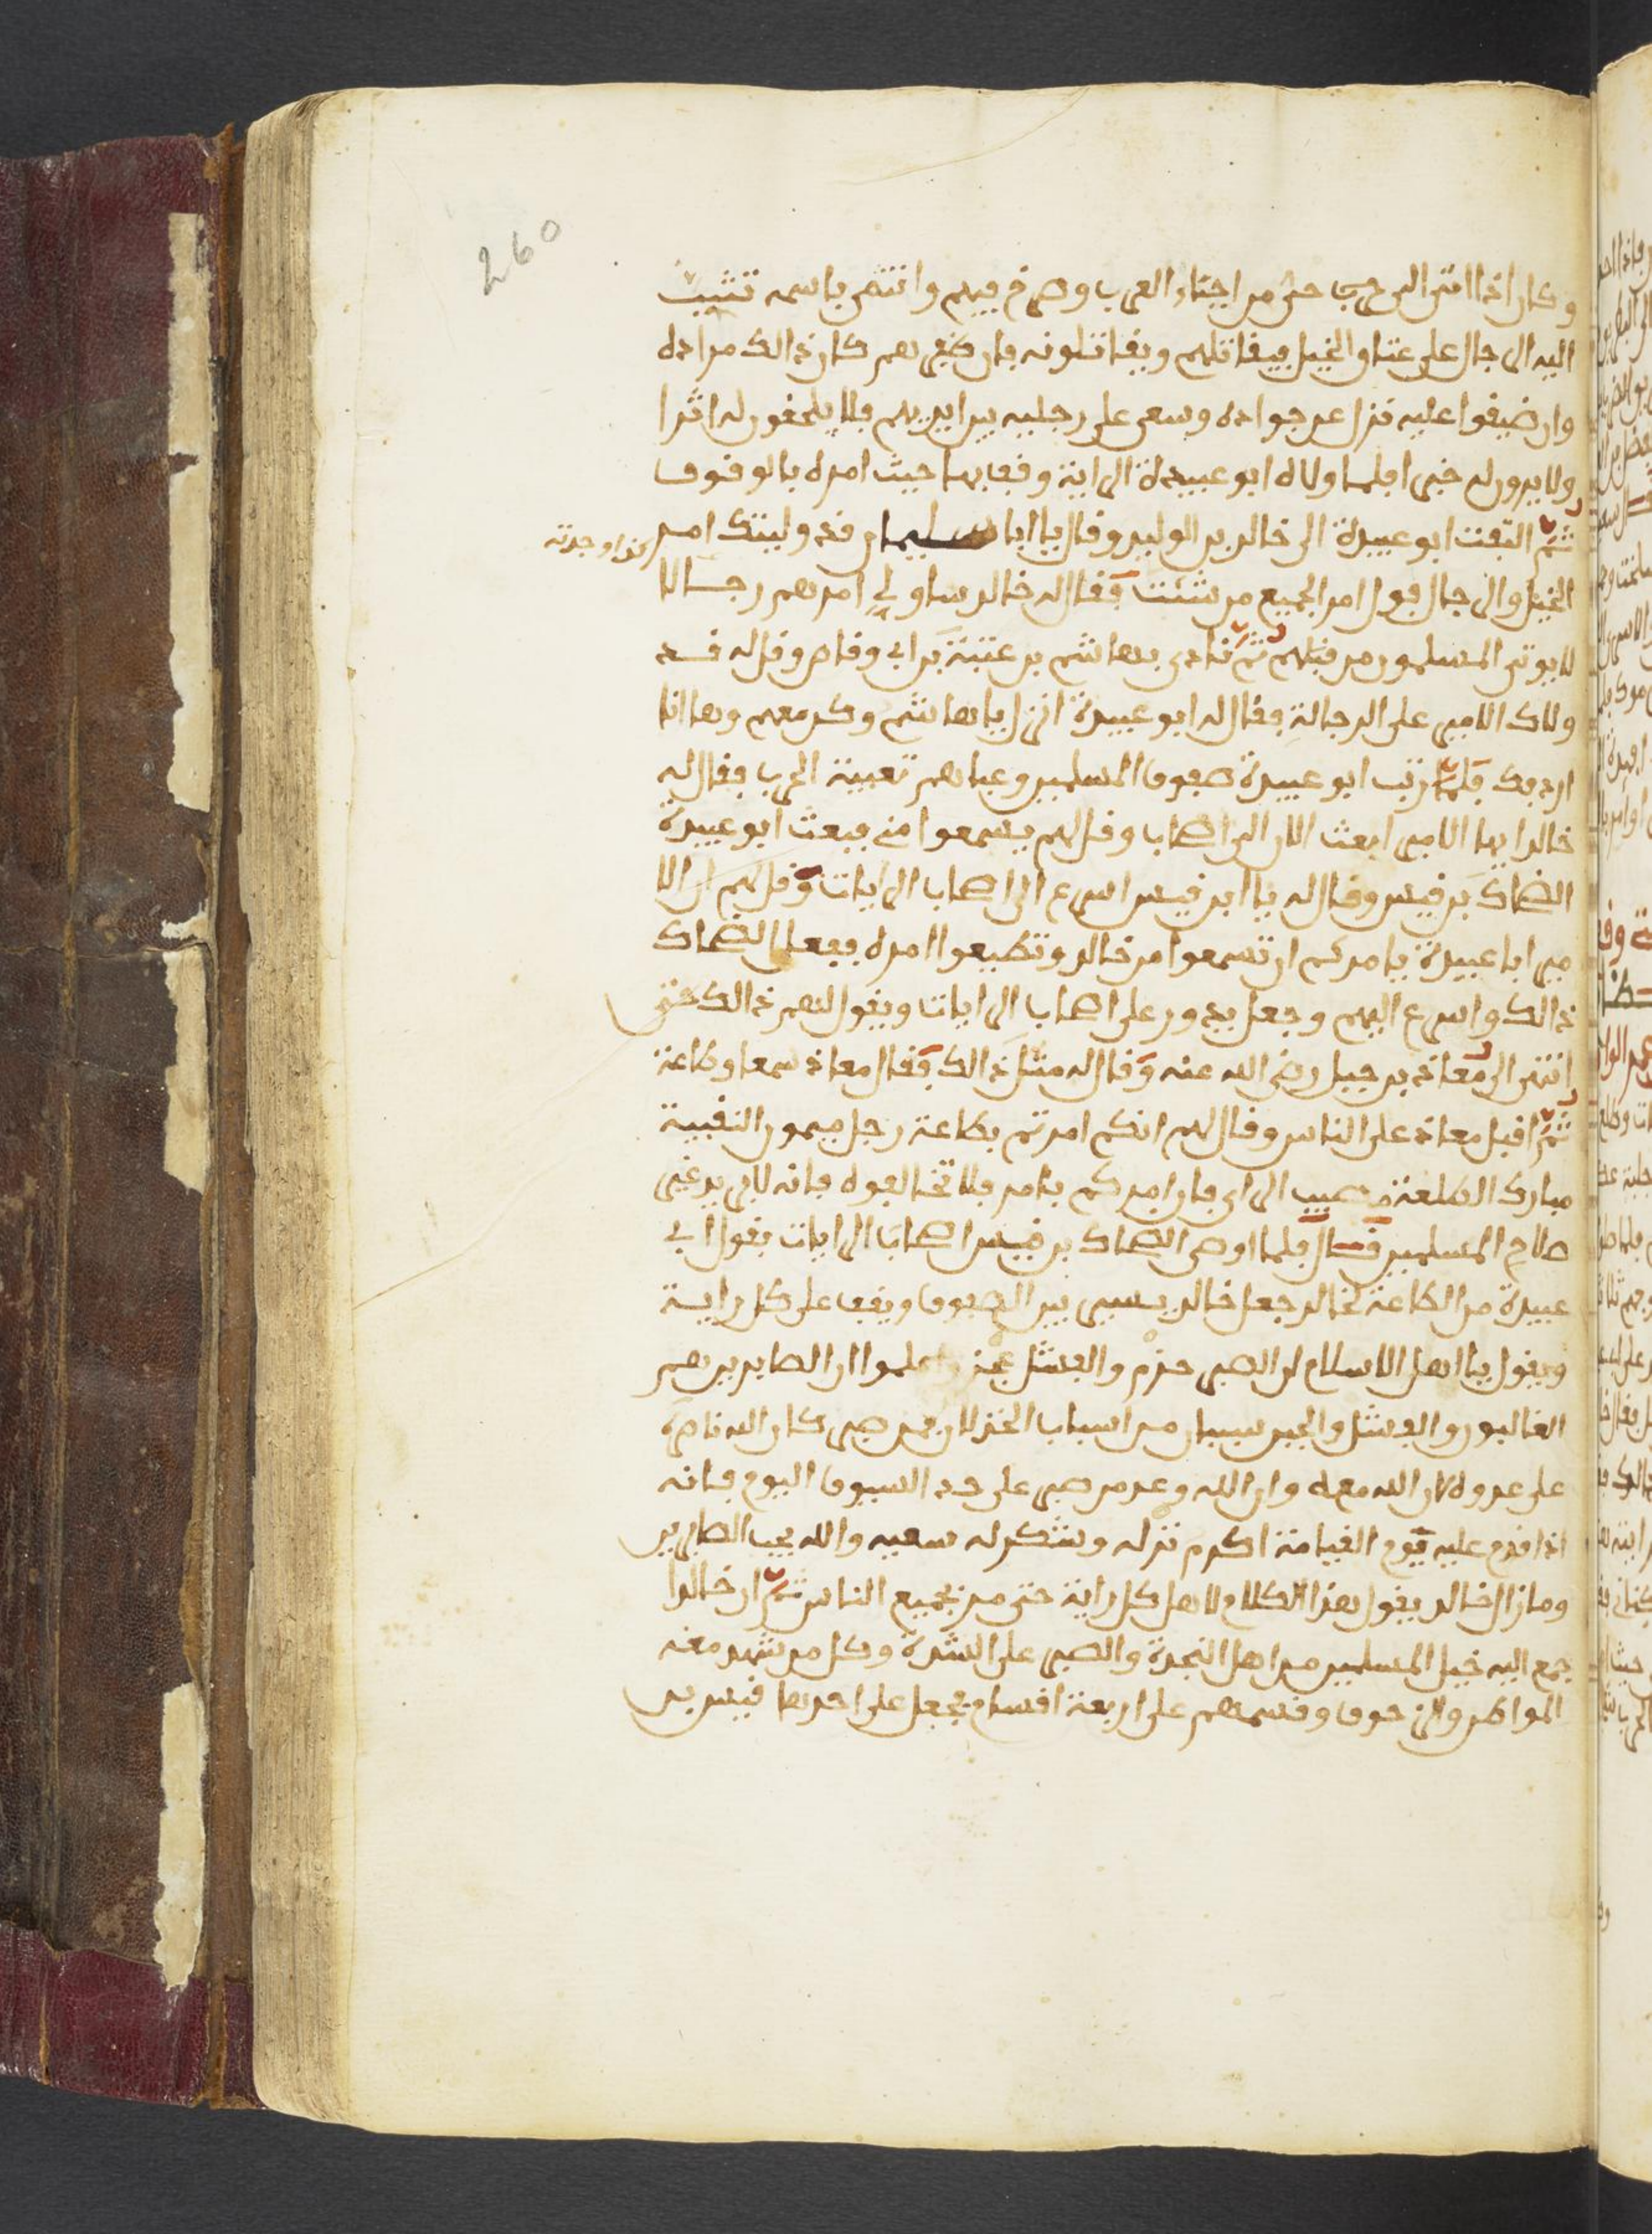 260
وكان اذا اتى الى حي من احياء العرب وصرخ فيهم وانتمى باسمه تثبت
اليه الرجال على عتاق الخيل فيقاتلهم ويقاتلونه فان ظفر بهم كان ذالك مراده
وان ضيقوا عليه نزل عن جواده وسعى على رجليه بين ايديهم فلا يلحقون له اثرا
ولا يرون له خبرا فلما ولاه ابو عبيدة الراية وقف بها حيث امره بالوقوف
ثم التفت ابو عبيدة الى خالد بن الوليد وقال يا ابا سليمان قد وليتك امر
كذا وجدته
الخيل والرجال فول امر الجميع من شئت فقال له خالد ساولي امرهم رجالا
لا يوتى المسلمون من قبلهم ثم نادى بهاشم بن عتبة بن ابي وقاص وقال له قد
ولاك الامير على الرجالة فقال له ابو عبيدة انزل يا هاشم وكن معهم وها انا
اردفك فلما رتب ابو عبيدة صفوف المسلمين وعباهم تعبية الحرب فقال له
خالد ايها الامير ابعث الان الى اصحاب وقل لهم يسمعوا مني فبعث ابو عبيدة
الضحاك بن قيس وقال له يا ابن قيس اسرع الى اصحاب الرايات وقل لهم ان الا
مير ابا عبيدة يامركم ان تسمعوا من خالد وتطيعوا امره ففعل الضحاك
ذالك واسرع اليهم وجعل يدور على اصحاب الرايات ويقول لهم ذالك حتى
انتهى الى معاذ بن جبل رضي الله عنه وقال له مثل ذالك فقال معاذ سمعا وطاعة
ثم اقبل معاذ على الناس وقال لهم انكم امرتم بطاعة رجل ميمون النقيبة
مبارك الطلعة مصيب الراى فان امركم بامر فلا تخالفوه فانه لا يريد غير
صلاح المسلمين قال فلما اوصى الضحاك بن قيس اصحاب الرايات بقول ابي
عبيدة من الطاعة لخالد جعل خالد يسير بين الصفوف ويقف على كل راية
ويقول يا اهل الاسلام ان الصبر حزم والفشل عجز واعلموا ان الصابرين هم
الغالبون والفشل والجبن سببان من اسباب الخذلان فمن صبر كان الله ناصره
على عدوه لان الله معه وان الله وعد من صبر على حد السيوف اليوم فانه
اذا قدم عليه يوم القيامة اكرم نزله وشكر له سعيه والله يحب الصابرين
وما زال خالد يقول هذا الكلام لاهل كل راية حتى مر بجميع الناس ثم ان خالدا
جمع اليه خيل المسلمين من اهل النجدة والصبر على الشدة وكل من شهد معه
المواطن والزحوف وقسمهم على اربعة اقسام فجعل على احدها قيس بن